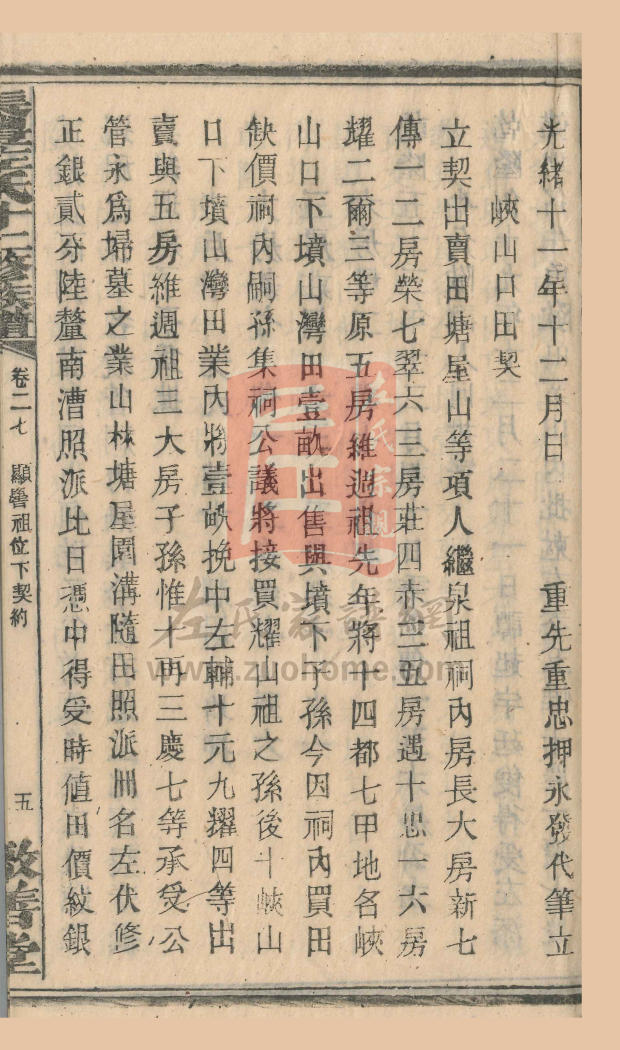 光緒十一年十二月日　重先重忠押永發代筆立
峽山口田契
立契出賣田塘屋山等項人繼泉祖祠內房長大房新七
傳一二房榮七翠六三房莊四赤三五房遇十忠一六房
耀二爾三等原五房維週祖先年將十四都七甲地名峽
山口下墳山灣田壹畝出售與墳下子孫今因祠內買田
缺價祠內嗣孫集祠公議將接買耀山祖之孫後十峽山
口下墳山灣田業內將壹畝挽中左輔十元九耀四等出
賣與五房維週祖三大房子孫惟十再三慶七等承受公
管永爲埽墓之業山林塘屋園溝隨田照派冊名左伏修
正銀貳分陸釐南漕照派比日憑中得受時值田價紋銀
左氏十二修族譜
卷二七　顯譽祖位下契約
五
敦善堂
左氏宗親
左氏家譜網
www.zuohome.com